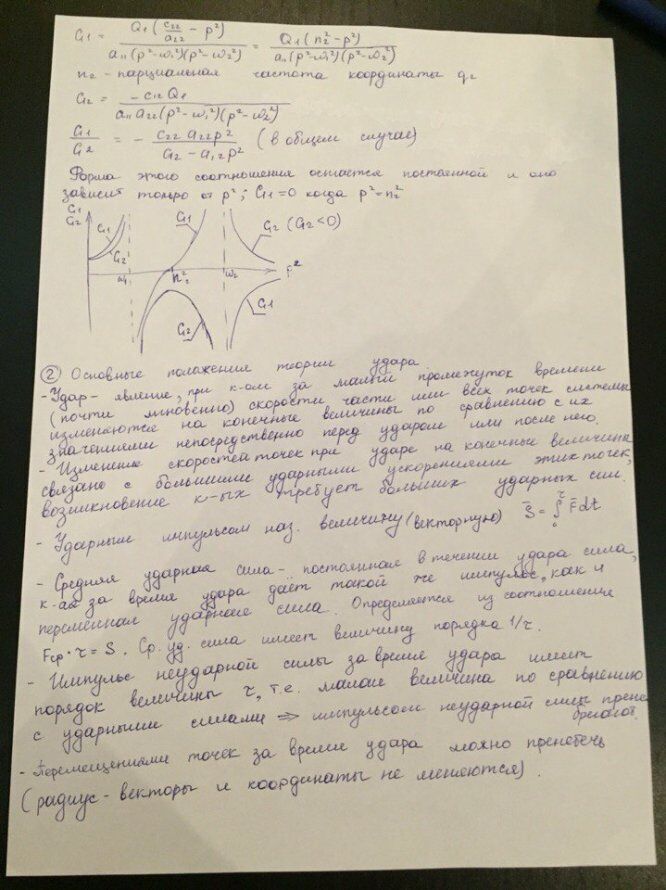 G₁ = Q₁(c₂₂/a₂₂ - p²) / a₁₁(p²-ω₁²)(p²-ω₂²) = Q₁(n₂²-p²) / a₁₁(p²-ω₁²)(p²-ω₂²)
n₂ - парциальная частота координаты q₂
G₂ = -c₁₂Q₁ / a₁₁a₂₂(p²-ω₁²)(p²-ω₂²)
G₁/G₂ = - c₂₂ a₂₂p² / G₂ - a₁₂p² (в общем случае)
Форма этого соотношения остается постоянной и оно
зависит только от p²; G₁=0 когда p²=n₂²
G₁
G₂
G₁
G₂
G₁
G₂ (G₂<0)
ω₁ n₂² ω₂ p²
G₂
G₁
② Основные положения теории удара.
- Удар - явление, при к-ом за малый промежуток времени
(почти мгновенно) скорости части или всех точек системы
изменяются на конечные величины по сравнению с их
значениями непосредственно перед ударом или после него.
- Изменение скоростей точек при ударе на конечные величины
связано с большими ударными ускорениями этих точек,
возникновение к-ых требует больших ударных сил.
- Ударным импульсом наз. величину (векторную) S̄ = ∫₀^τ F̄dt
- Средняя ударная сила - постоянная в течении удара сила,
к-ая за время удара даёт такой же импульс, как и
переменная ударная сила. Определяется из соотношения
Fср · τ = S. Ср. уд. сила имеет величину порядка 1/τ.
- Импульс неударной силы за время удара имеет
порядок величины τ, т.е. малая величина по сравнению
с ударными силами ⇒ импульсом неударной силы прене
брегают.
- Перемещениями точек за время удара можно пренебречь
(радиус-векторы и координаты не меняются).